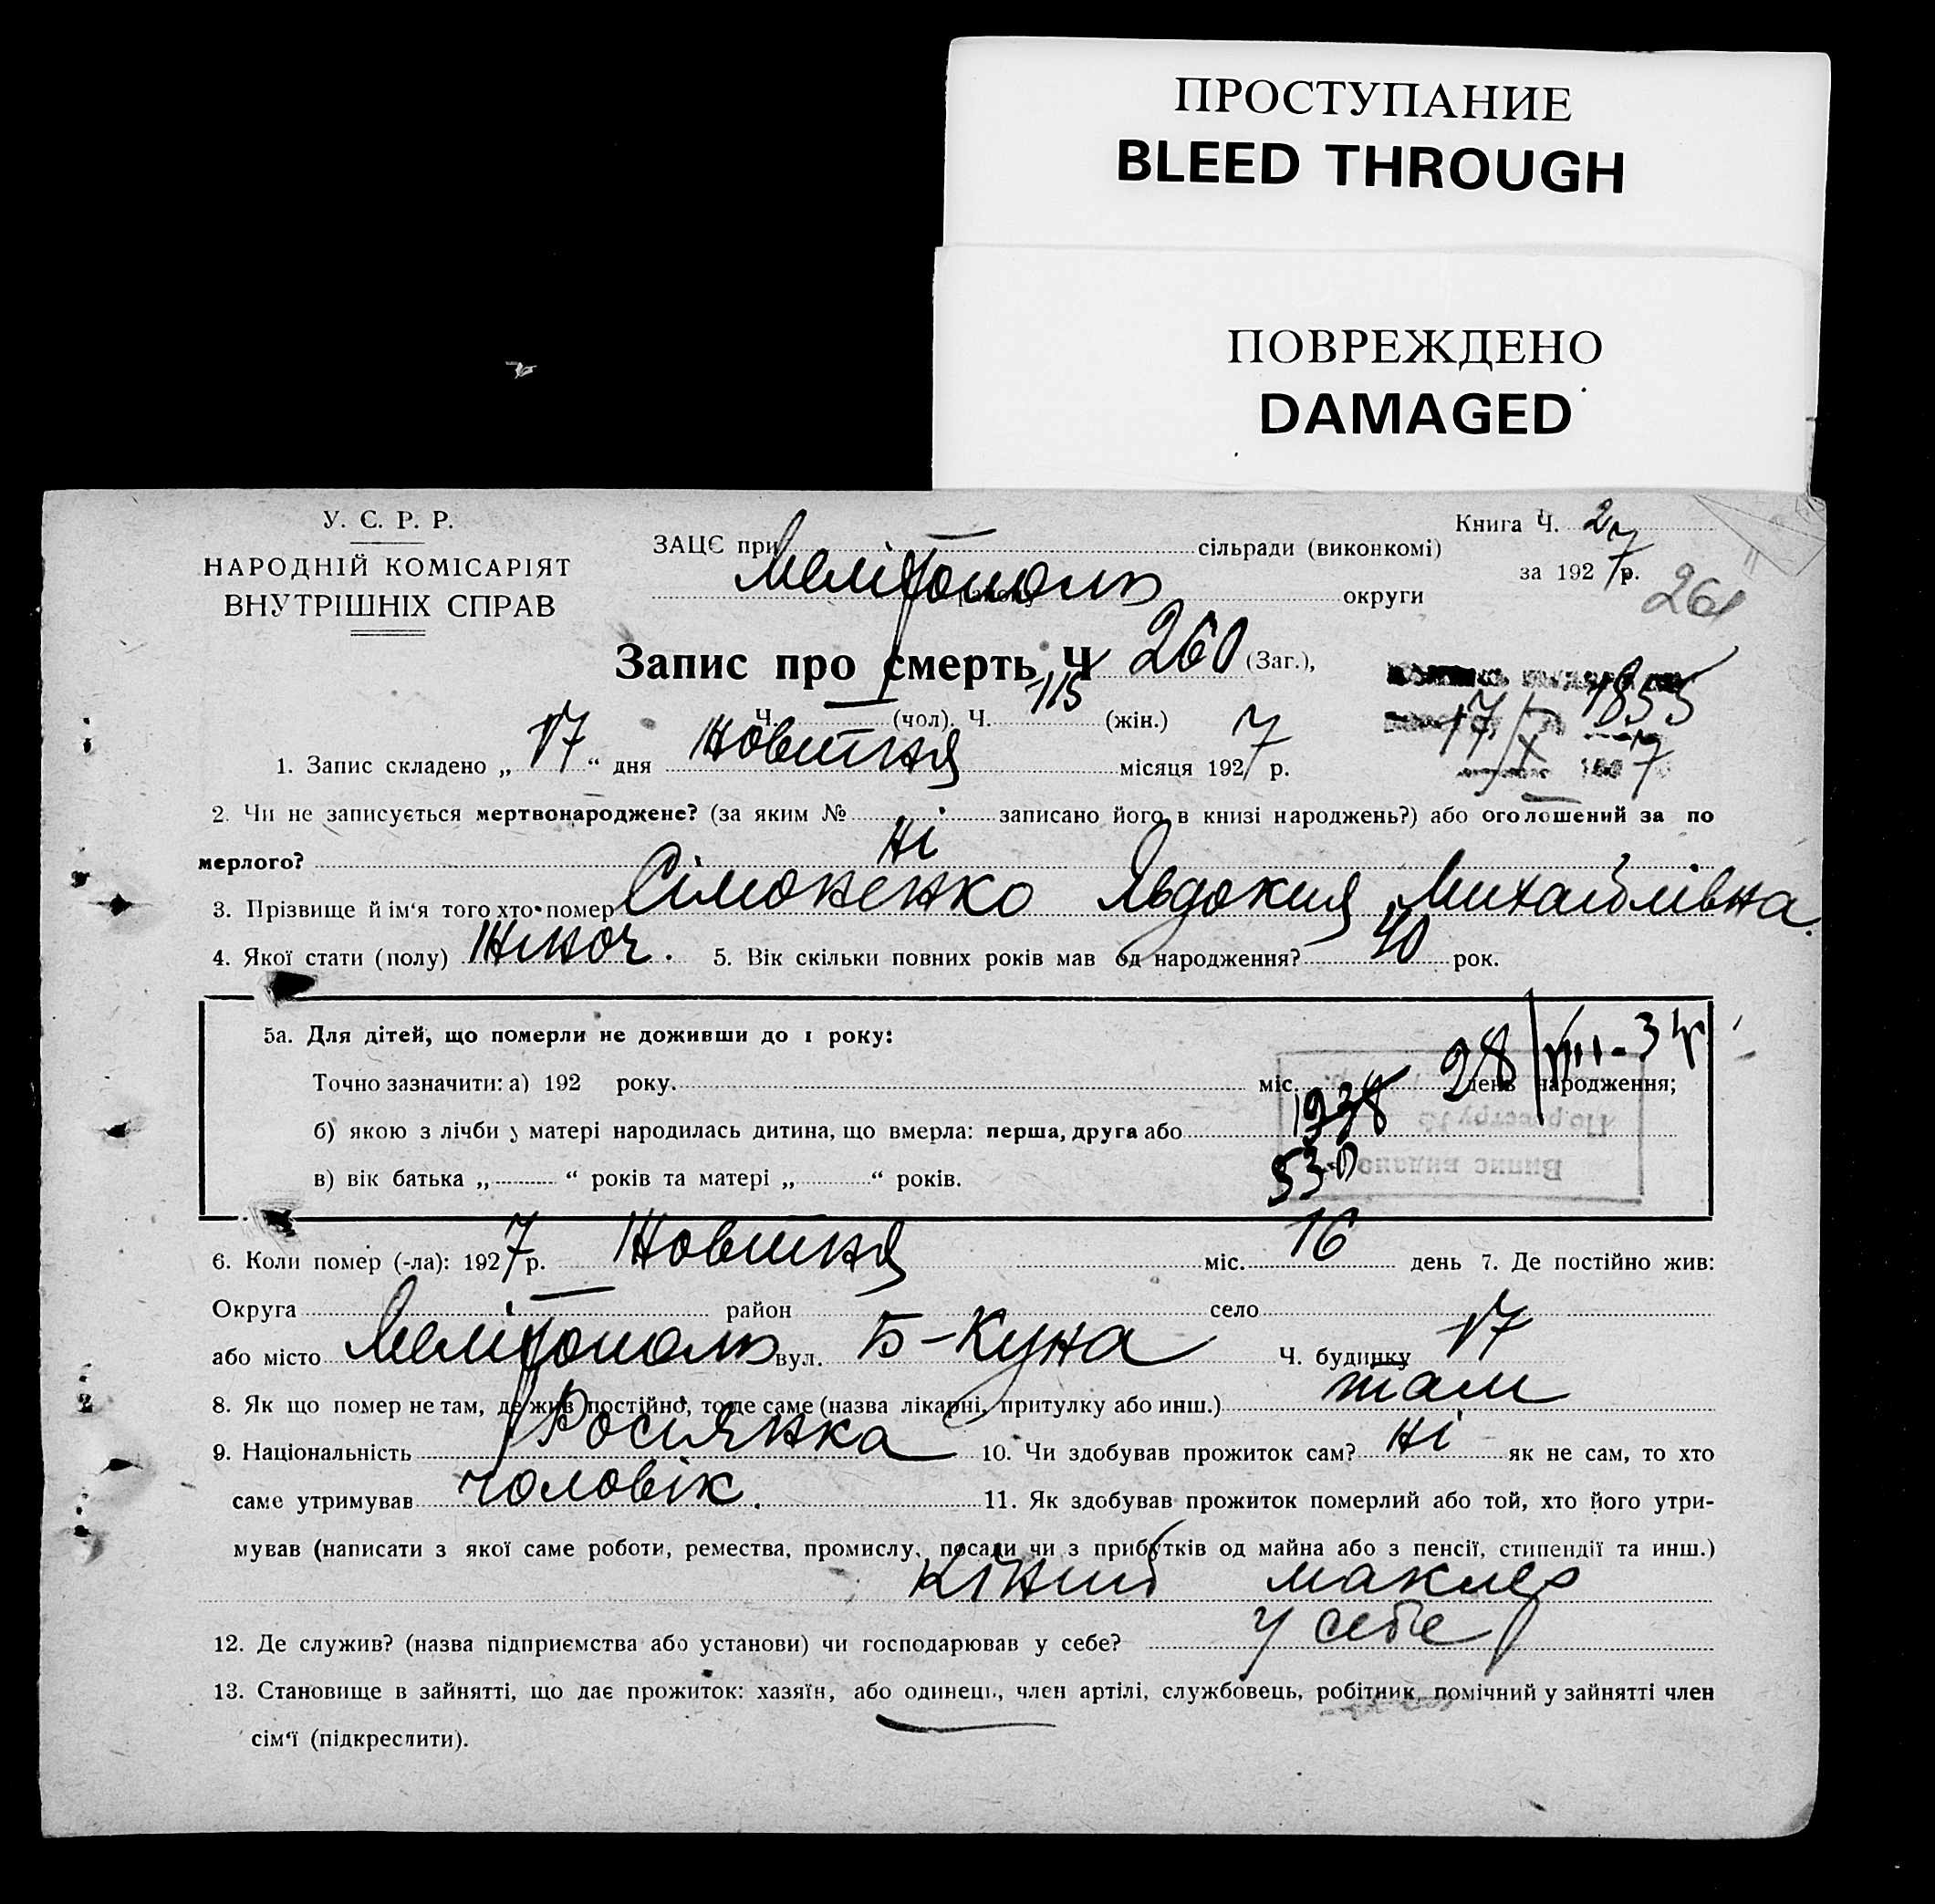 ПРОСТУПАНИЕ
BLEED THROUGH
ПОВРЕЖДЕНО
DAMAGED
У. С. Р. Р.
НАРОДНІЙ КОМІСАРІЯТ
ВНУТРІШНІХ СПРАВ
Книга Ч. 27
за 1927 р.
261
ЗАЦС при сільради (виконкомі)
Мелітополь району округи
Запис про смерть Ч 260 (Заг.),
Ч. — (чол). Ч. 115 (жін.)
1855
17/X 1927
1. Запис складено „17“ дня Жовтня місяця 1927 р.
2. Чи не записується мертвонароджене? (за яким № записано його в книзі народжень?) або оголошений за по
мерлого? Ні
3. Прізвище й ім'я того хто помер Сімоненко Явдокия Михайлівна
4. Якої стати (полу) Жіноч. 5. Вік скільки повних років мав од народження? 40 рок.
5а. Для дітей, що померли не доживши до 1 року:
28/VIII-3
Точно зазначити: а) 192 року. міс. день народження;
1938
б) якою з лічби у матері народилась дитина, що вмерла: перша, друга або
в) вік батька „ “ років та матері „ “ років.
530
Випис видано
6. Коли помер (-ла): 1927 р. Жовтня міс. 16 день 7. Де постійно жив:
Округа район село
або місто Мелітополь вул. Б-Куна Ч. будинку 17
8. Як що помер не там, де жив постійно, то де саме (назва лікарні, притулку або инш.) там
9. Національність Росиянка 10. Чи здобував прожиток сам? Ні як не сам, то хто
саме утримував чоловік. 11. Як здобував прожиток померлий або той, хто його утри-
мував (написати з якої саме роботи, ремества, промислу, посади чи з прибутків од майна або з пенсії, стипендії та инш.)
Кіний маклер
12. Де служив? (назва підприємства або установи) чи господарював у себе? у себе
13. Становище в зайнятті, що дає прожиток: хазяїн, або одинець, член артілі, службовець, робітник помічний у зайнятті член
сім'ї (підкреслити).